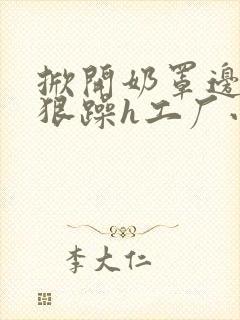 掀開奶罩邊
狠躁h工厂
李大仁